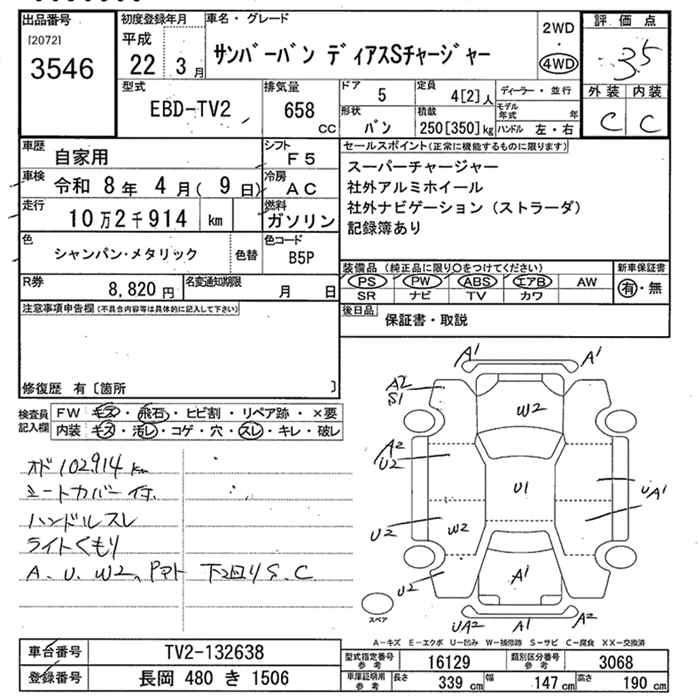 出品番号
[2072]
3546
初度登録年月
平成
22年 3月
車名・グレード
サンバーバン ディアスSチャージャー
2WD
4WD
評価点
3.5
外装 内装
C C
型式
EBD-TV2
排気量
658 cc
ドア 5
定員 4[2]人
ディーラー・並行
形状 バン
積載 250[350]kg
モデル年式 年
ハンドル 左・右
車歴 自家用
シフト F5
車検 令和 8年 4月( 9日)
冷房 AC
走行 10万2千914 km
燃料 ガソリン
色 シャンパン・メタリック
色替
色コード B5P
R券 8,820円
名変通知期限 月 日
セールスポイント(正常に機能するものに限ります)
スーパーチャージャー
社外アルミホイール
社外ナビゲーション(ストラーダ)
記録簿あり
装備品(純正品に限り○をつけてください)
PS PW ABS エアB AW
SR ナビ TV カワ
新車保証書
有・無
後日品 保証書・取説
注意事項申告欄(不具合内容等は具体的に記入して下さい)
修復歴 有〔箇所 〕
検査員記入欄
FW キズ・飛石・ヒビ割・リペア跡・×要
内装 キズ・汚レ・コゲ・穴・スレ・キレ・破レ
オド102914km
シートカバー付
ハンドルスレ
ライトくもり
A、U、W2、 下回りS、C
A1 A1
A2
S1
W2
A2
U2
U1
UA1
U2
W2
U2
A1
UA2 A1 A2
スペア
A-キズ E-エクボ U-凹み W-補修跡 S-サビ C-腐食 XX-交換済
車台番号 TV2-132638
登録番号 長岡 480 き 1506
型式指定番号 参考 16129
類別区分番号 参考 3068
車庫証明用 参考 長さ 339cm 幅 147cm 高さ 190cm